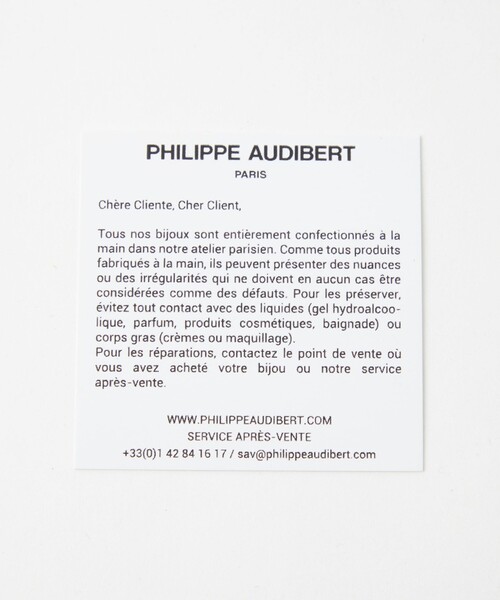 PHILIPPE AUDIBERT
PARIS
Chère Cliente, Cher Client,
Tous nos bijoux sont entièrement confectionnés à la
main dans notre atelier parisien. Comme tous produits
fabriqués à la main, ils peuvent présenter des nuances
ou des irrégularités qui ne doivent en aucun cas être
considérées comme des défauts. Pour les préserver,
évitez tout contact avec des liquides (gel hydroalcoo-
lique, parfum, produits cosmétiques, baignade) ou
corps gras (crèmes ou maquillage).
Pour les réparations, contactez le point de vente où
vous avez acheté votre bijou ou notre service
après-vente.
WWW.PHILIPPEAUDIBERT.COM
SERVICE APRÈS-VENTE
+33(0)1 42 84 16 17 / sav@philippeaudibert.com